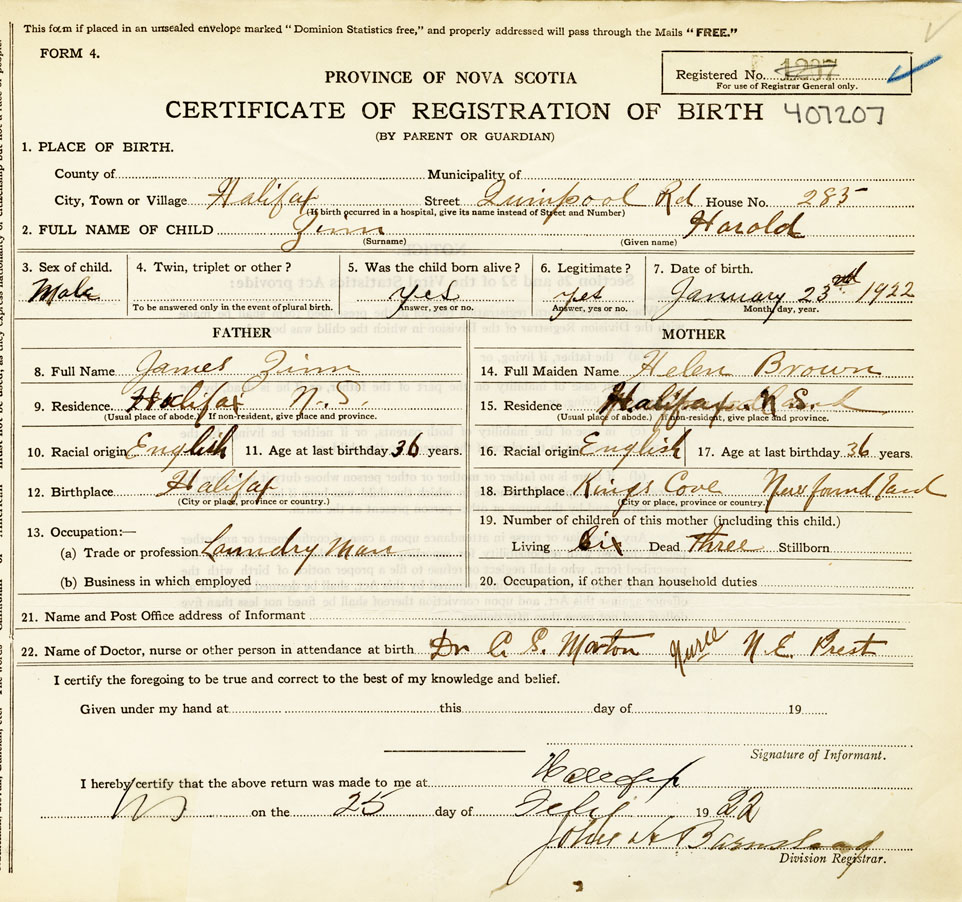 This form if placed in an unsealed envelope marked "Dominion Statistics free," and properly addressed will pass through the Mails "FREE."
FORM 4.
PROVINCE OF NOVA SCOTIA
Registered No. 1237
For use of Registrar General only.
CERTIFICATE OF REGISTRATION OF BIRTH 407207
(BY PARENT OR GUARDIAN)
1. PLACE OF BIRTH.
County of Municipality of
City, Town or Village Halifax Street Quinpool Rd House No. 285
(If birth occurred in a hospital, give its name instead of Street and Number)
2. FULL NAME OF CHILD Zinn Harold
(Surname) (Given name)
3. Sex of child. 4. Twin, triplet or other? 5. Was the child born alive? 6. Legitimate? 7. Date of birth.
Male yes yes January 23rd 1922
To be answered only in the event of plural birth. Answer, yes or no. Answer, yes or no. Month, day, year.
FATHER MOTHER
8. Full Name James Zinn 14. Full Maiden Name Helen Brown
9. Residence Halifax N.S. 15. Residence Halifax N.S.
(Usual place of abode.) If non-resident, give place and province. (Usual place of abode.) If non-resident, give place and province.
10. Racial origin English 11. Age at last birthday 36 years. 16. Racial origin English 17. Age at last birthday 36 years.
12. Birthplace Halifax 18. Birthplace Kings Cove Newfoundland
(City or place, province or country.) (City or place, province or country.)
13. Occupation:— 19. Number of children of this mother (including this child.)
(a) Trade or profession Laundry Man Living Six Dead Three Stillborn
(b) Business in which employed 20. Occupation, if other than household duties
21. Name and Post Office address of Informant
22. Name of Doctor, nurse or other person in attendance at birth Dr Morton Nurse N.E. Prest
I certify the foregoing to be true and correct to the best of my knowledge and belief.
Given under my hand at this day of 19
Signature of Informant.
I hereby certify that the above return was made to me at Halifax
on the 25 day of Feby 1922
John H Barnstead
Division Registrar.